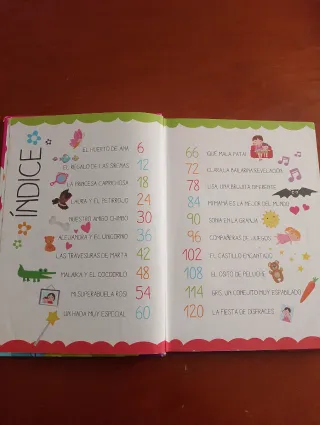 ÍNDICE
EL HUERTO DE ANA 6
EL REGALO DE LAS 12
LA PRINCESA CAPRICHOSA 18
LAURA Y EL PETIRROJO 24
NUESTRO AMIGO CHINO 30
ALEJANDRA Y EL UNICORNIO 36
LAS TRAVESURAS DE MARTA 42
MALAIKA Y EL COCODRILO 48
MI SUPERABUELA ROSI 54
UN HADA MUY ESPECIAL 60
66 ¡QUÉ MALA PATA!
72 CLARA LA BAILARINA REVELACIÓN
78 LISA, UNA BRUJITA DIFERENTE
84 MI MAMÁ ES LA MEJOR DEL MUNDO
90 SOFÍA EN LA GRANJA
96 COMPAÑERAS DE JUEGOS
102 EL CASTILLO ENCANTADO
108 EL OSITO DE PELUCHE
114 GRIS, UN CONEJITO MUY ESPABILADO
120 LA FIESTA DE DISFRACES